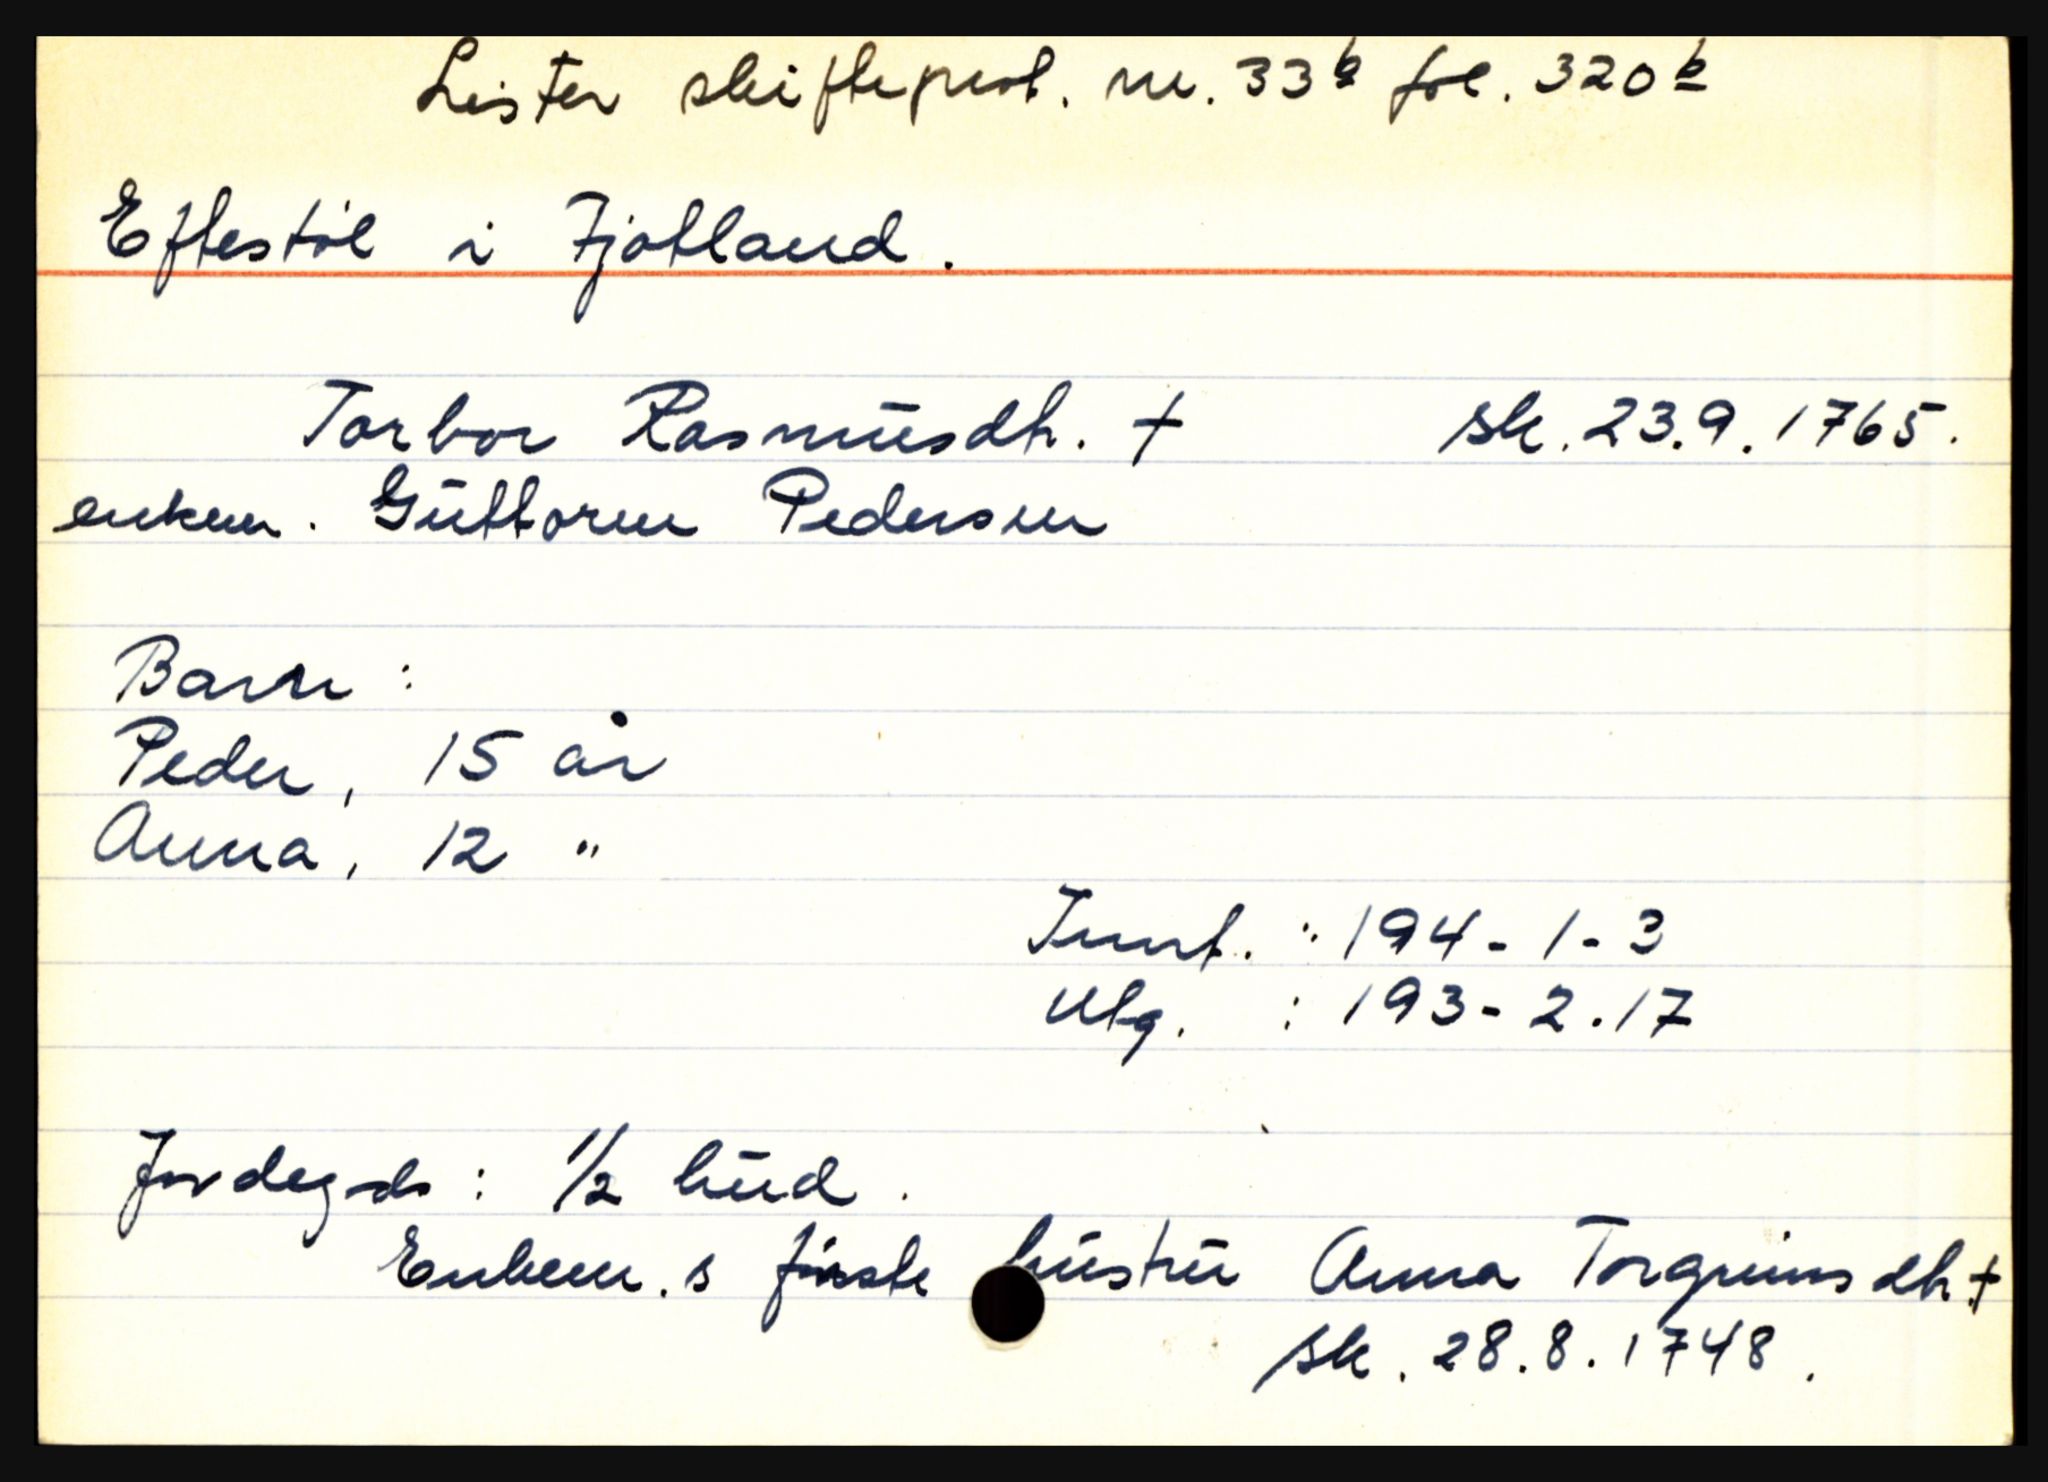 Lister skifteprot. nr. 33b fol. 320b
Eftestöl i Fjotland.
Torbor Rasmusdh. † sk. 23.9.1765.
enkem. Guttorm Pedersen
Barn :
Peder, 15 år
Anna, 12 "
Innt. : 194 - 1 - 3
Utg. : 193 - 2 . 17
Jordegods : 1/2 hud.
Enkem.s förste hustru Anna Torgrimsdh †
sk. 28.8.1748.